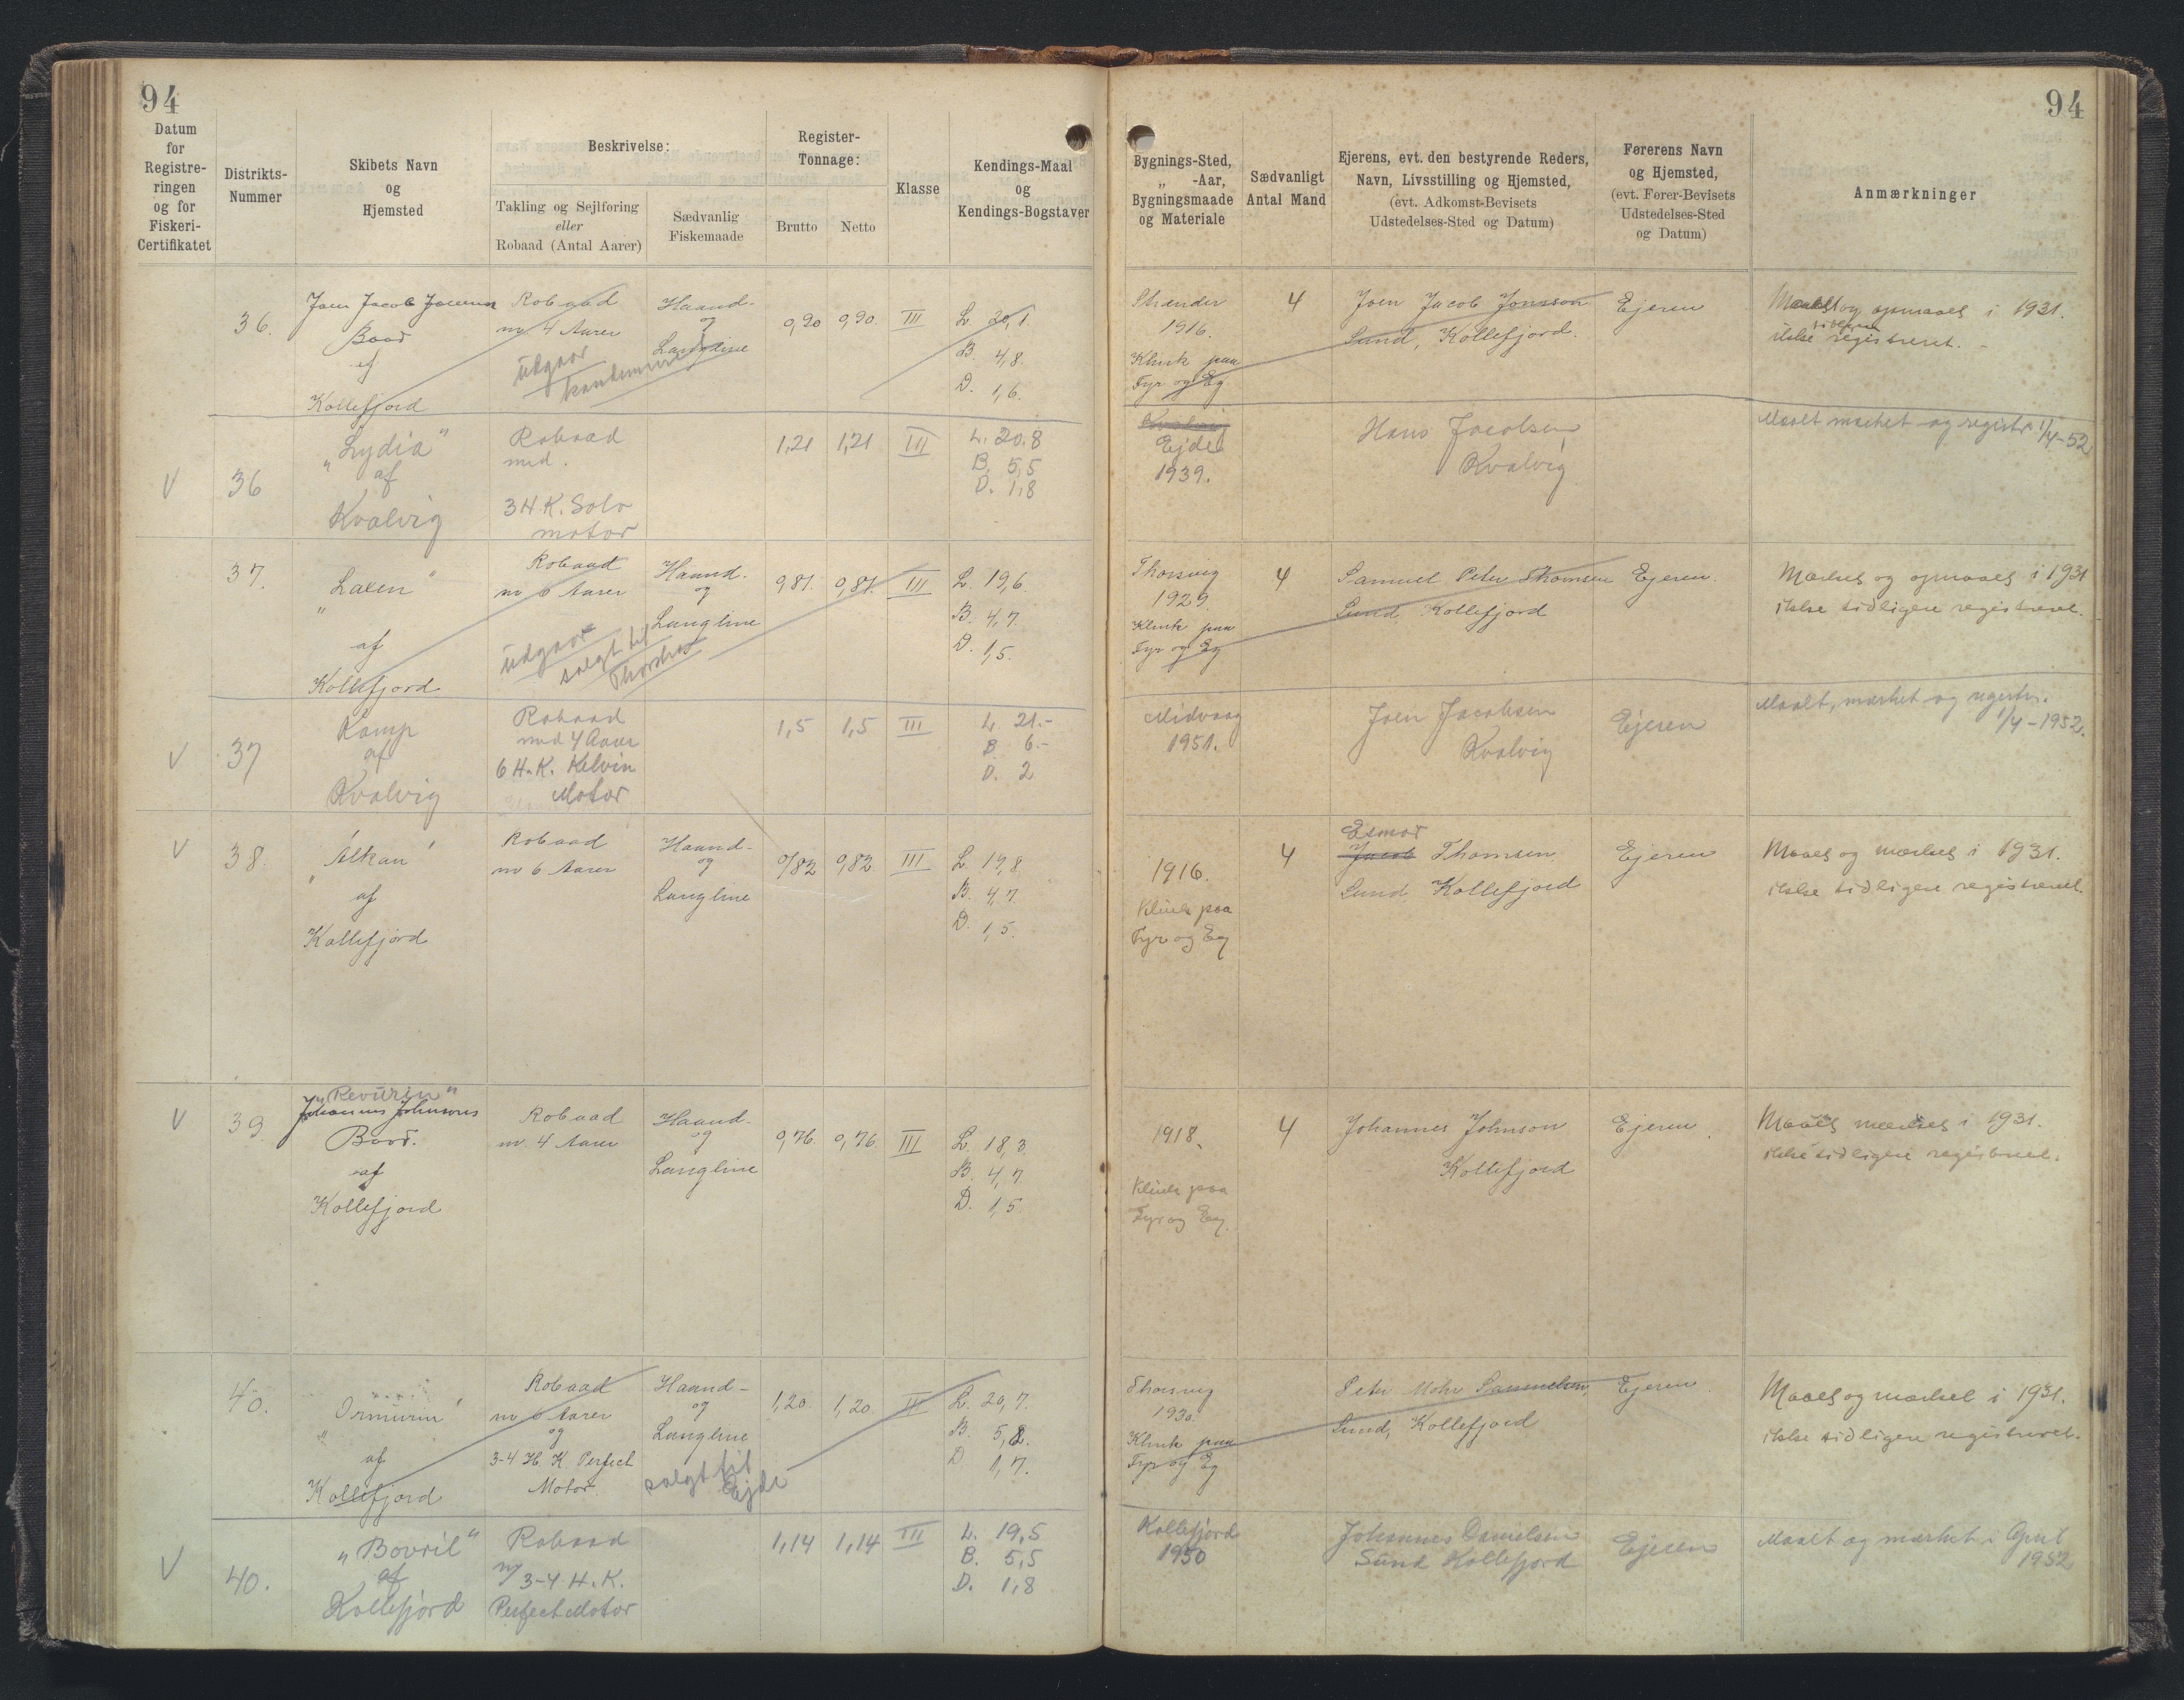 94
94
Datum
for
Registre-
ringen
og for
Fiskeri-
Certifikatet
Distrikts-
Nummer
Skibets Navn
og
Hjemsted
Beskrivelse:
Takling og Sejlføring
eller
Robaad (Antal Aarer)
Sædvanlig
Fiskemaade
Register-
Tonnage:
Brutto
Netto
Klasse
Kendings-Maal
og
Kendings-Bogstaver
Bygnings-Sted,
„ -Aar,
Bygningsmaade
og Materiale
Sædvanligt
Antal Mand
Ejerens, evt. den bestyrende Reders,
Navn, Livsstilling og Hjemsted,
(evt. Adkomst-Bevisets
Udstedelses-Sted og Datum)
Førerens Navn
og Hjemsted,
(evt. Fører-Bevisets
Udstedelses-Sted
og Datum)
Anmærkninger
36.
Joen Jacob
Baad
af
Kollefjord
Robaad
m 4 Aarer
udgaar
Haand-
og
Langline
0,90
0,90
III
L. 20,1
B. 4,8.
D. 1,6.
Strender
1916.
Klink paa
Fyr og Eg
4
Joen Jacob Joensson
Sund, Kollefjord.
Ejeren
og opmaalt i 1931.
ikke tidligere registreret.
V
36
„Lydia“
af
Kvalvig
Robaad
med.
3 H.K. Solo
motor
1,21
1,21
III
L. 20.8
B. 5,5
D. 1,8
Ejde
1939.
Hans Jacobsen
Kvalvig
Maalt mærket og registr. 1/4-52
37.
„Laxen“
af
Kollefjord
Robaad
m 6 Aarer
udgaar
solgt til
Haand-
og
Langline
0,81.
0,81.
III
L. 19,6.
B. 4,7.
D. 1,5.
Thorsvig
1929.
Klink paa
Fyr og Eg
4
Samuel Peter Thomsen
Sund Kollefjord
Ejeren.
Mærket og opmaalt i 1931
ikke tidligere registreret.
V
37
Kamp
af
Kvalvig
Robaad
med 4 Aarer
6 H.K. Kelvin
Motor
1,5
1,5
III
L. 21.-
B 6.-
D. 2
Midvaag
1951.
Joen Jacobsen
Kvalvig
Ejeren
Maalt, mærket og registr.
1/4-1952.
V
38.
„Álkan“
af
Kollefjord
Robaad
m 6 Aarer
Haand-
og
Langline
0,82
0,82
III
L 19,8
B. 4,7.
D. 1,5.
1916.
Klink paa
Fyr og Eg
4
Esmar
Jacob Thomsen,
Sund Kollefjord
Ejeren
Maalt og mærket i 1931.
ikke tidligere registreret.
V
39
„Revurin“
Johannes Johnsons
Baad.
af
Kollefjord
Robaad
m. 4 Aarer
Haand-
og
Langline
0,76.
0,76.
III
L. 18,3.
B. 4,7.
D. 1,5.
1918.
Klink paa
Fyr og Eg.
4
Johannes Johnson
Kollefjord
Ejeren.
Maalt mærket i 1931.
ikke tidligere registreret.
40.
„Ormurin“
af
Kollefjord
Robaad
m 6 Aarer
og
3-4 H K Perfect
Motor.
Haand-
og
Langline
solgt til
Ejde
1,20.
1,20.
L. 20,7.
B. 5,8.
D 1,7.
Thorsvig
1930.
Klink paa
Fyr og Eg
Peter Mohr Samuelsen,
Sund, Kollefjord
Ejeren.
Maalt og mærket i 1931.
ikke tidligere registreret.
V
40.
„Bovril“
af
Kollefjord
Robaad
m/ 3-4 H.K.
Perfect Motor
1,14
1,14
III
L. 19,5
B. 5,5
D. 1,8
Kollefjord
1950
Johannes Danielsen
Sund Kollefjord
Ejeren
Maalt og mærket i April
1952